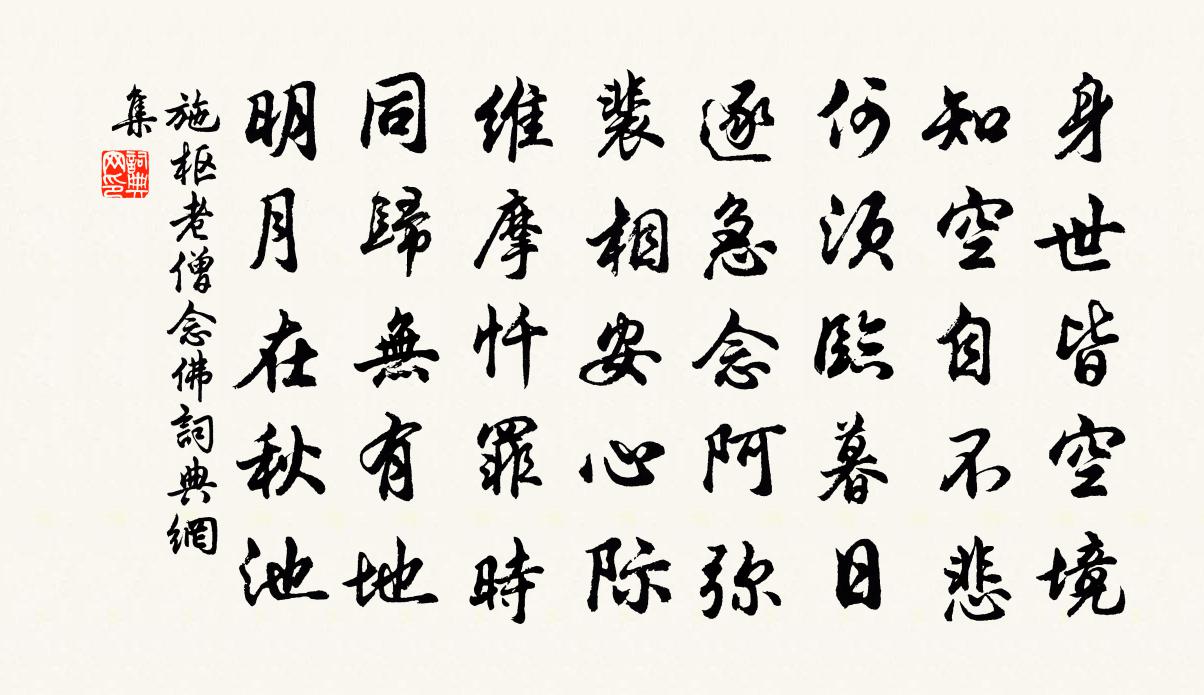 身世皆空境
知空自不悲
何须臨暮日
逐急念阿弥
裴相安心际
維摩忏罪時
同歸無有地
明月在秋池
施枢老僧念佛詞典網
集
詞典网印